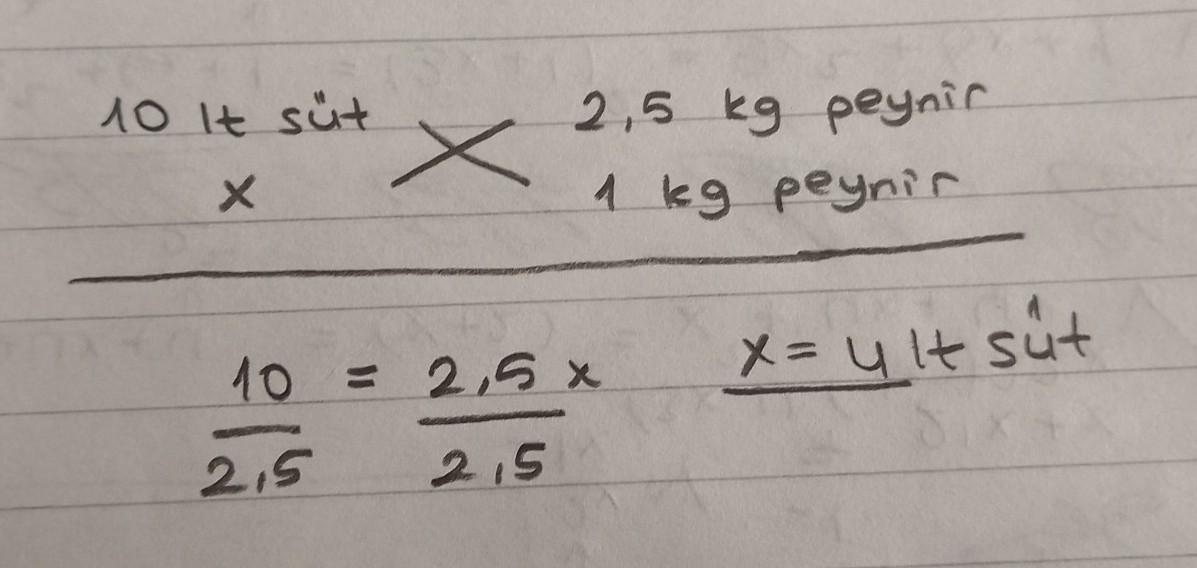 10 lt süt 2,5 kg peynir
x 1 kg peynir
10 = 2,5 x x = 4 lt süt
2,5 2,5